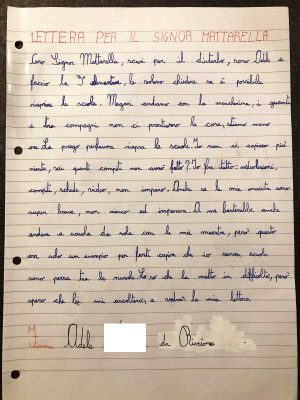 LETTERA PER IL SIGNOR MATTARELLA
Caro Signor Mattarella, scusi per il disturbo, sono Adele e
faccio la 3° elementare, le volevo chiedere se è possibile
riaprire le scuole. Magari andiamo con la mascherina, i guanti
e tra compagni non ci prestiamo le cose, stiamo meno
ore. La prego per favore riapra le scuole. Io non ci capisco più
niente, sai quanti compiti non avevo fatto? Io fra tutto: videolezioni,
compiti, schede, video, non imparo. Anche se le mie maestre sono
super brave, non riesco ad imparare. A me basterebbe anche
andare a scuola da sola con le mie maestre, però questo
era solo un esempio per farti capire che io senza scuola
sono persa tra le nuvole. Lo so che la metto in difficoltà, però
spero che lei mi ascolterà, e vedrà la mia lettera.
Firma Adele da Riccione